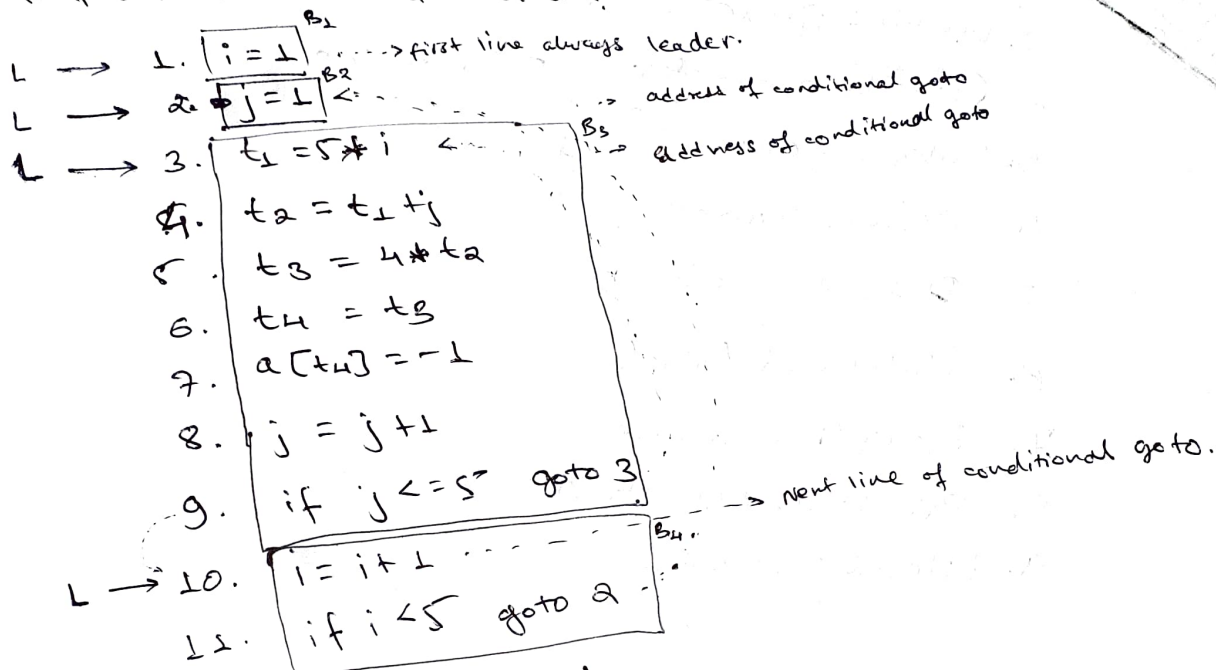 B1
L → 1. i = 1 ····> first line always leader.
B2
L → 2. j = 1 address of conditional goto
B3
L → 3. t1 = 5 * i address of conditional goto
4. t2 = t1 + j
5. t3 = 4 * t2
6. t4 = t3
7. a[t4] = -1
8. j = j + 1
9. if j <= 5 goto 3
B4. Next line of conditional goto.
L → 10. i = i + 1
11. if i < 5 goto 2